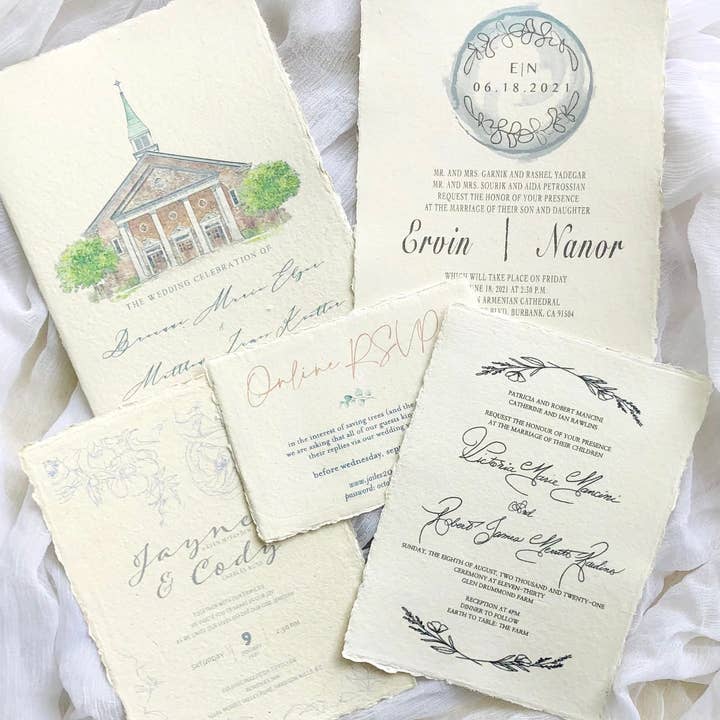 THE WEDDING CELEBRATION OF
E|N
06.18.2021
MR. AND MRS. GARNIK AND RASHEL YADEGAR
MR. AND MRS. SOURIK AND AIDA PETROSSIAN
REQUEST THE HONOR OF YOUR PRESENCE
AT THE MARRIAGE OF THEIR SON AND DAUGHTER
Ervin | Nanor
WHICH WILL TAKE PLACE ON FRIDAY
JUNE 18, 2021 AT 2:30 P.M.
ARMENIAN CATHEDRAL
BLVD., BURBANK, CA 91504
Online RSVP
in the interest of saving trees (and the
we are asking that all of our guests
their replies via our wedding
before wednesday,
password:
PATRICIA AND ROBERT MANCINI
CATHERINE AND IAN RAWLINS
REQUEST THE HONOUR OF YOUR PRESENCE
AT THE MARRIAGE OF THEIR CHILDREN
Victoria Marie Mancini
And
Robert James
SUNDAY, THE EIGHTH OF AUGUST, TWO THOUSAND AND TWENTY-ONE
CEREMONY AT ELEVEN-THIRTY
GLEN DRUMMOND FARM
RECEPTION AT 4PM
DINNER TO FOLLOW
EARTH TO TABLE: THE FARM
Jayne
& Cody
SATURDAY 9 4:30 PM